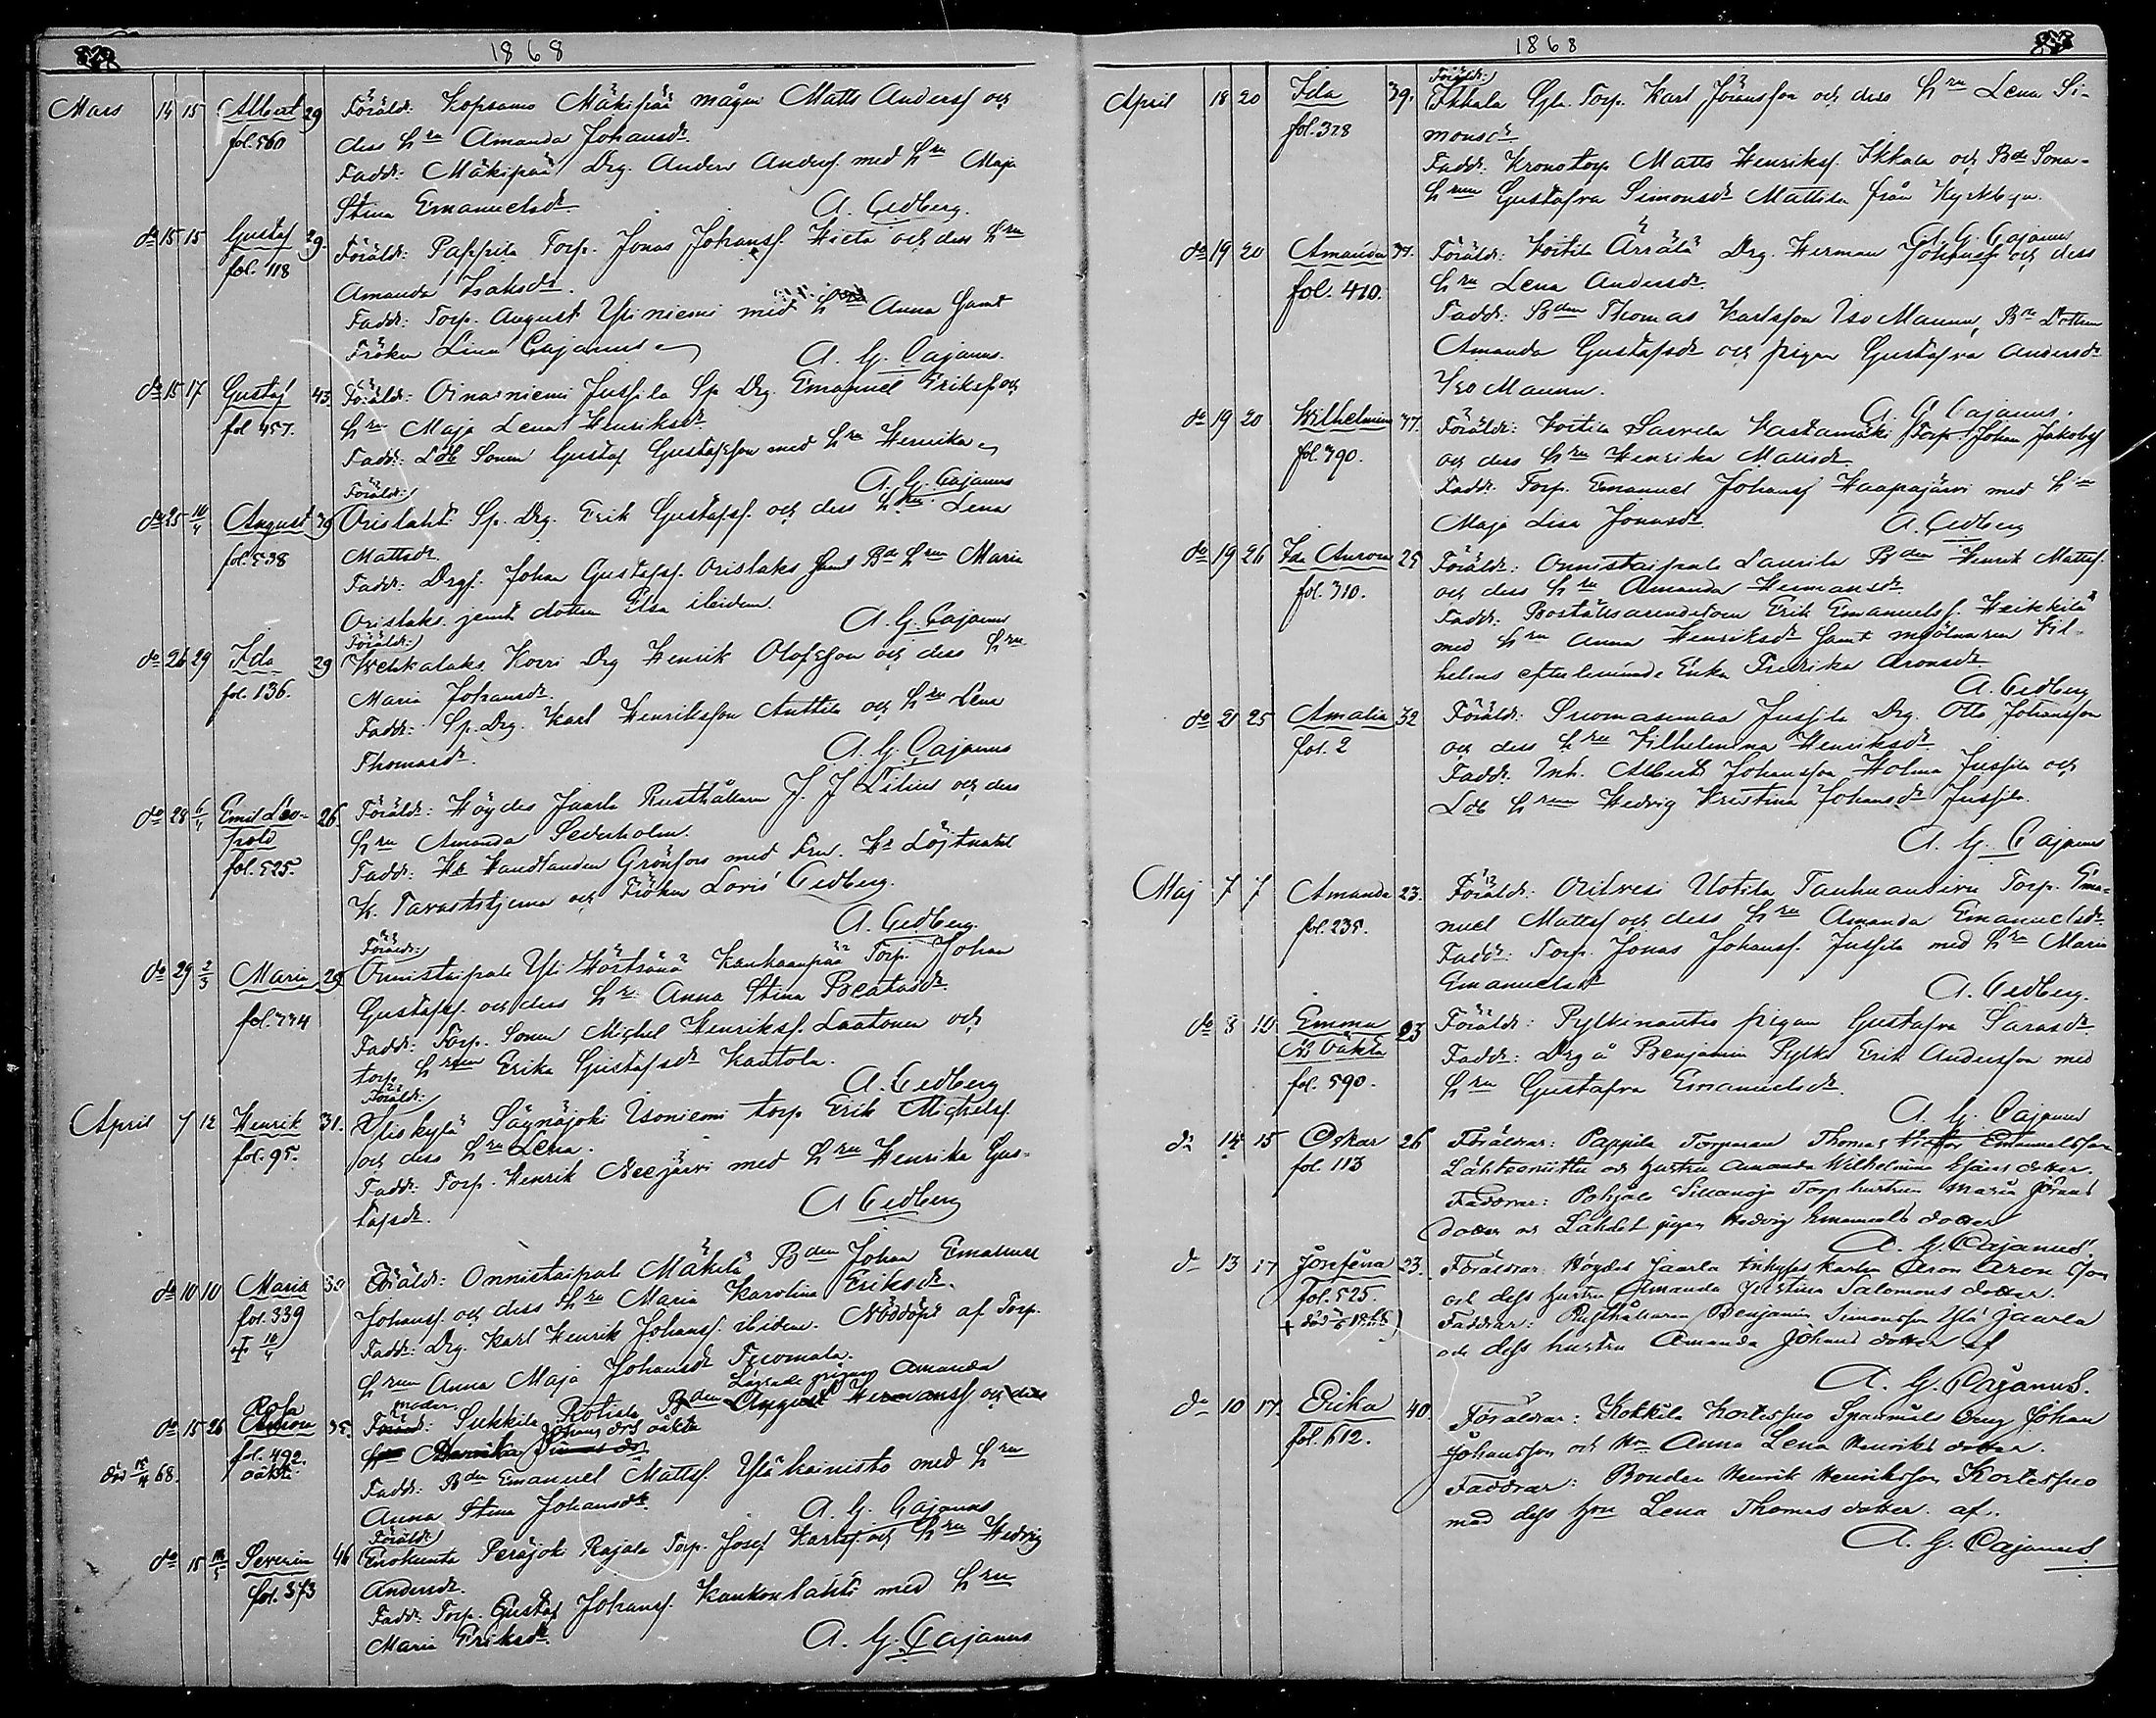 1868
Mars 14 15 Albert 29 Föräldr: Kopsamo Mäkipää mågen Matts Andersf. och
fol. 560 dess hru Amanda Johansdr.
Faddr: Mäkipää Drg. Anders Andersf. med hru Maja
Stina Emanuelsdr. A. Cedberg.
do 15 15 Gustaf 29. Föräldr: Pappila Torp. Jonas Johansf. Hieta och dess hru
fol. 118 Amanda Isaksdr.
Faddr: Torp. August Yliniemi med hru Anna samt
Fröken Lina Cajanus A. G. Cajanus.
do 15 17 Gustaf 43. Föräldr: Oinasniemi Jussila Sp. Drg. Emanuel Eriksf. och
fol 457. hru Maja Lena Henriksdr
Faddr: Ldb Sonen Gustaf Gustafsson med hru Henrika
A. G. Cajanus
Föräldr:
do 25 10/4 August 39 Orislaht Sp. Drg. Erik Gustafsf. och dess hru Lena
fol. 538 Mattsdr.
Faddr: Drgs. Johan Gustafsf. Orislaks samt Bde hrun Maria
Orislaks jemte dottern Elsa ibidem.
A. G. Cajanus
Föräldr:
do 26 29 Ida 29 Wehkalaks Korri Drg Henrik Olofsson och dess hru
fol. 136. Maria Johansdr.
Faddr: Sp. Drg. Karl Henriksson Anttila och hru Lena
Thomasdr. A. G. Cajanus
do 28 6/4 Emil Leo- 26. Föräldr: Höydes Jaarla Rusthållaren J. J. Lilius och dess
pold hru Amanda Sederholm.
fol. 525. Faddr: Hr Handlanden Grönfors med Fru. Hr Löjtnant
K. Tavaststjerna och Fröken Lovis Cedberg.
A. Cedberg.
Föräldr:
do 29 2/5 Maria 29 Onnistaipale Yli Hörtsänä Kanhaanpää Torp. Johan
fol. 334 Gustafsf. och dess hru Anna Stina Beatasdr.
Faddr: Torp. Sonen Michel Henriksf. Laatonen och
torp. hrun Erika Gustafsdr Kantola.
A. Cedberg
Föräldr:
April 7 12 Henrik 31. Yliskylä Säynäjoki Isoniemi torp Erik Michelsf.
fol. 95. och dess hru Lena.
Faddr: Torp. Henrik Neejärvi med hru Henrika Gus-
tafsdr. A Cedberg
do 10 10 Maria 38 Föräldr: Onnistaipale Mäkelä Bden Johan Emanuel
fol. 339 Johansf. och dess hru Maria Karolina Eriksdr.
† 10/4 Faddr: Drg. Karl Henrik Johansf. ibidem. Nöddöpt af Torp.
hrun Anna Maja Johansdr Tuomola.
moder Lägrade pigan Amanda
Rosa
do 15 26 35. Föräldr: Sukkila Rotisla Bden August Hermansf. och dess
fol. 492. Johans drs oäkta
oäkta
död 15/4 68. Faddr: Bden Emanuel Mattsf. Yläkainisto med hru
Anna Stina Johansdr. A. G. Cajanus
Föräldr:
do 15 Severin 46 Enokunta Peräjoki Rajala Torp. Josef Karlsf. och hru Hedvig
fol. 373 Andersdr.
Faddr: Torp. Gustaf Johansf. Kankonlahti med hru
Maria Eriksdr. A. G. Cajanus
1868
Föräldr:
April 18 20 Ida 39. Ikkala Torp. Karl Göransson och dess hru Lena Si-
fol. 328 monsdr.
Faddr: Kronotorp. Matts Henriksf. Ikkala och Bde Sona-
hrun Gustafva Simonsdr Mattila från Kyrkbyn.
A. G. Cajanus
do 19 20 Amanda 37. Föräldr: Voitila Ärrälä Drg. Herman Johansf. och dess
fol. 410. hru Lena Andersdr.
Faddr: Bden Thomas Karlsson Iso Maunu, Bde Dottern
Amanda Gustafsdr och pigan Gustafva Andersdr
Iso Maunu.
A. G. Cajanus.
do 19 20 Wilhelmina 37. Föräldr: Voitila Sarvela Kastamäki Torp. Johan Jakobsf.
fol. 390. och dess hru Henrika Mattsdr.
Faddr: Torp. Emanuel Johansf. Haapajärvi med hru
Maja Lisa Jonasdr. A. Cedberg
do 19 26 Ida Aurora 25 Föräldr: Onnistaipale Laurila Bden Henrik Mattsf.
fol. 310. och dess hru Amanda Hermansdr
Faddr: Boställsarendatoren Erik Emanuelsf. Heikkilä
med hru Anna Henriksdr samt mjölnaren Vil-
helms efterlemnade Enka Fredrika Aronsdr.
A. Cedberg
do 21 25 Amalia 32 Föräldr: Suomasemaa Jussila Drg. Otto Johansson
fol. 2 och dess hru Vilhelmina Henriksdr.
Faddr: Inh. Albert Johansson Holma Jussila och
Ldb hrun Hedvig Kristina Johansdr Jussila.
A. G. Cajanus
Maj 7 7 Amanda 23. Föräldr: Orihvesi Uotila Tanhuansivu Torp. Ema-
fol. 235. nuel Mattsf. och dess hru Amanda Emanuelsdr.
Faddr: Torp. Jonas Johansf. Jussila med hru Maria
Emanuelsdr A. Cedberg.
do 8 10 Emma 23 Föräldr: Pylkinautio pigan Gustafva Sarasdr.
oäkta Faddr: Drg å Benjamin Pylkö Erik Andersson med
fol. 590. hru Gustafva Emanuelsdr.
A. G. Cajanus
do 14 15 Oskar 26 Föräldrar: Pappila Torparen Thomas Viktor Emanuelsson
fol. 113 Lähteenniittu och hustru Amanda Wilhelmina Esaias dotter.
Faddrar: Pohjala Sillanoja Torp hustrun Maria Jörans
dotter och Lahdet pigan Hedvig Emanuels dotter
A. G. Cajanus.
do 13 17 Josefina 23. Föräldrar: Höydes Jaarla inhyses karlen Aron Aron son
Fol. 525. och dess hustru Amanda Justina Salomons dotter.
Faddrar: Rusthållaren Benjamin Simonsson Ylä Jaarla
och dess hustru Amanda Johans dotter af
A. G. Cajanus.
do 10 17. Erika 40. Föräldrar: Kokkila Kortessuo Spannmåls dreng Johan
fol. 612. Johansson och hru Anna Lena Henriks dotter.
Faddrar: Bonden Henrik Henriksson Kortessuo
med dess hru Lena Thomas dotter. af.
A. G. Cajanus